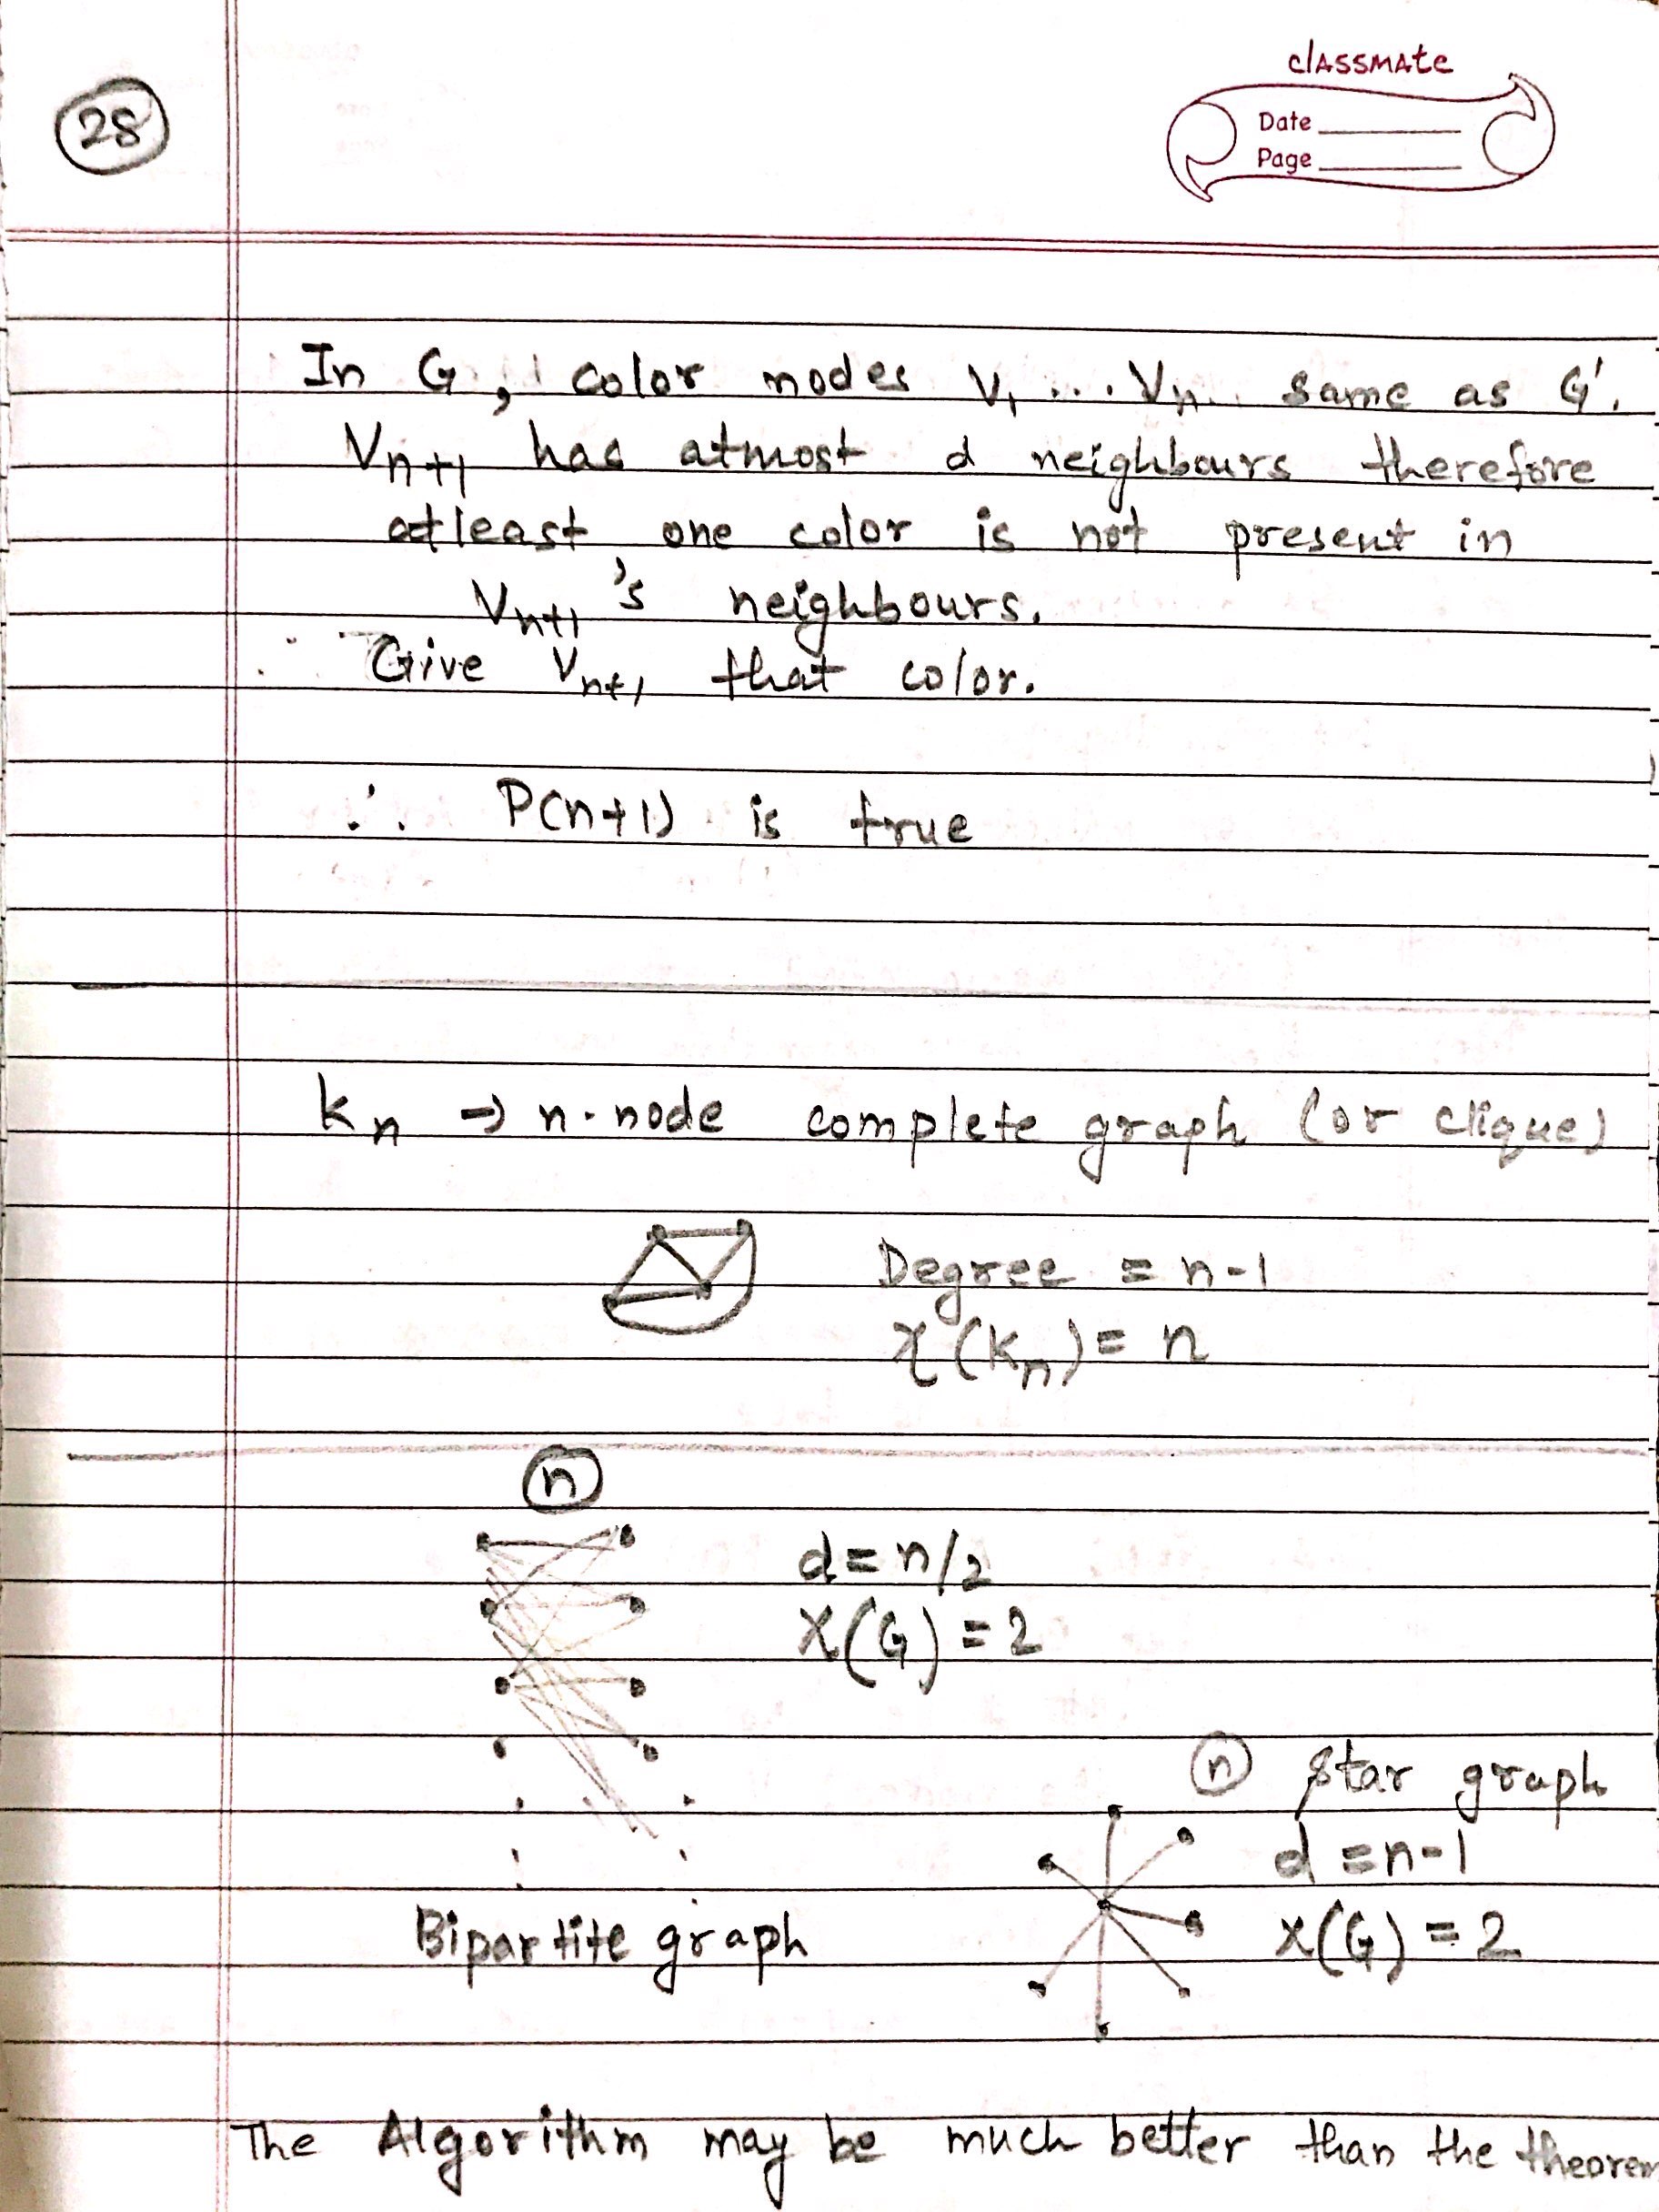 28
classmate
Date
Page
In G, color nodes V₁ ... Vₙ same as G'.
Vₙ₊₁ has atmost d neighbours therefore
atleast one color is not present in
Vₙ₊₁'s neighbours.
∴ Give Vₙ₊₁ that color.
∴ P(n+1) is true
Kₙ → n-node complete graph (or clique)
Degree = n-1
χ(Kₙ) = n
n
d = n/2
χ(G) = 2
n star graph
d = n-1
χ(G) = 2
Bipartite graph
The Algorithm may be much better than the theorem